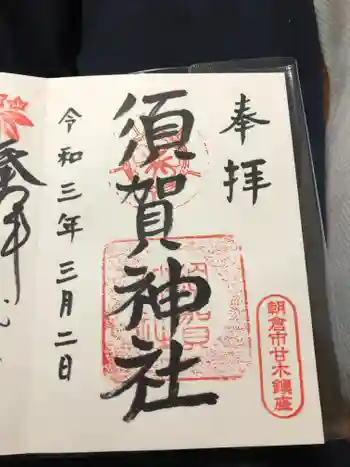 奉拝
朝倉市甘木鎮座
須賀神社
令和三年三月二日